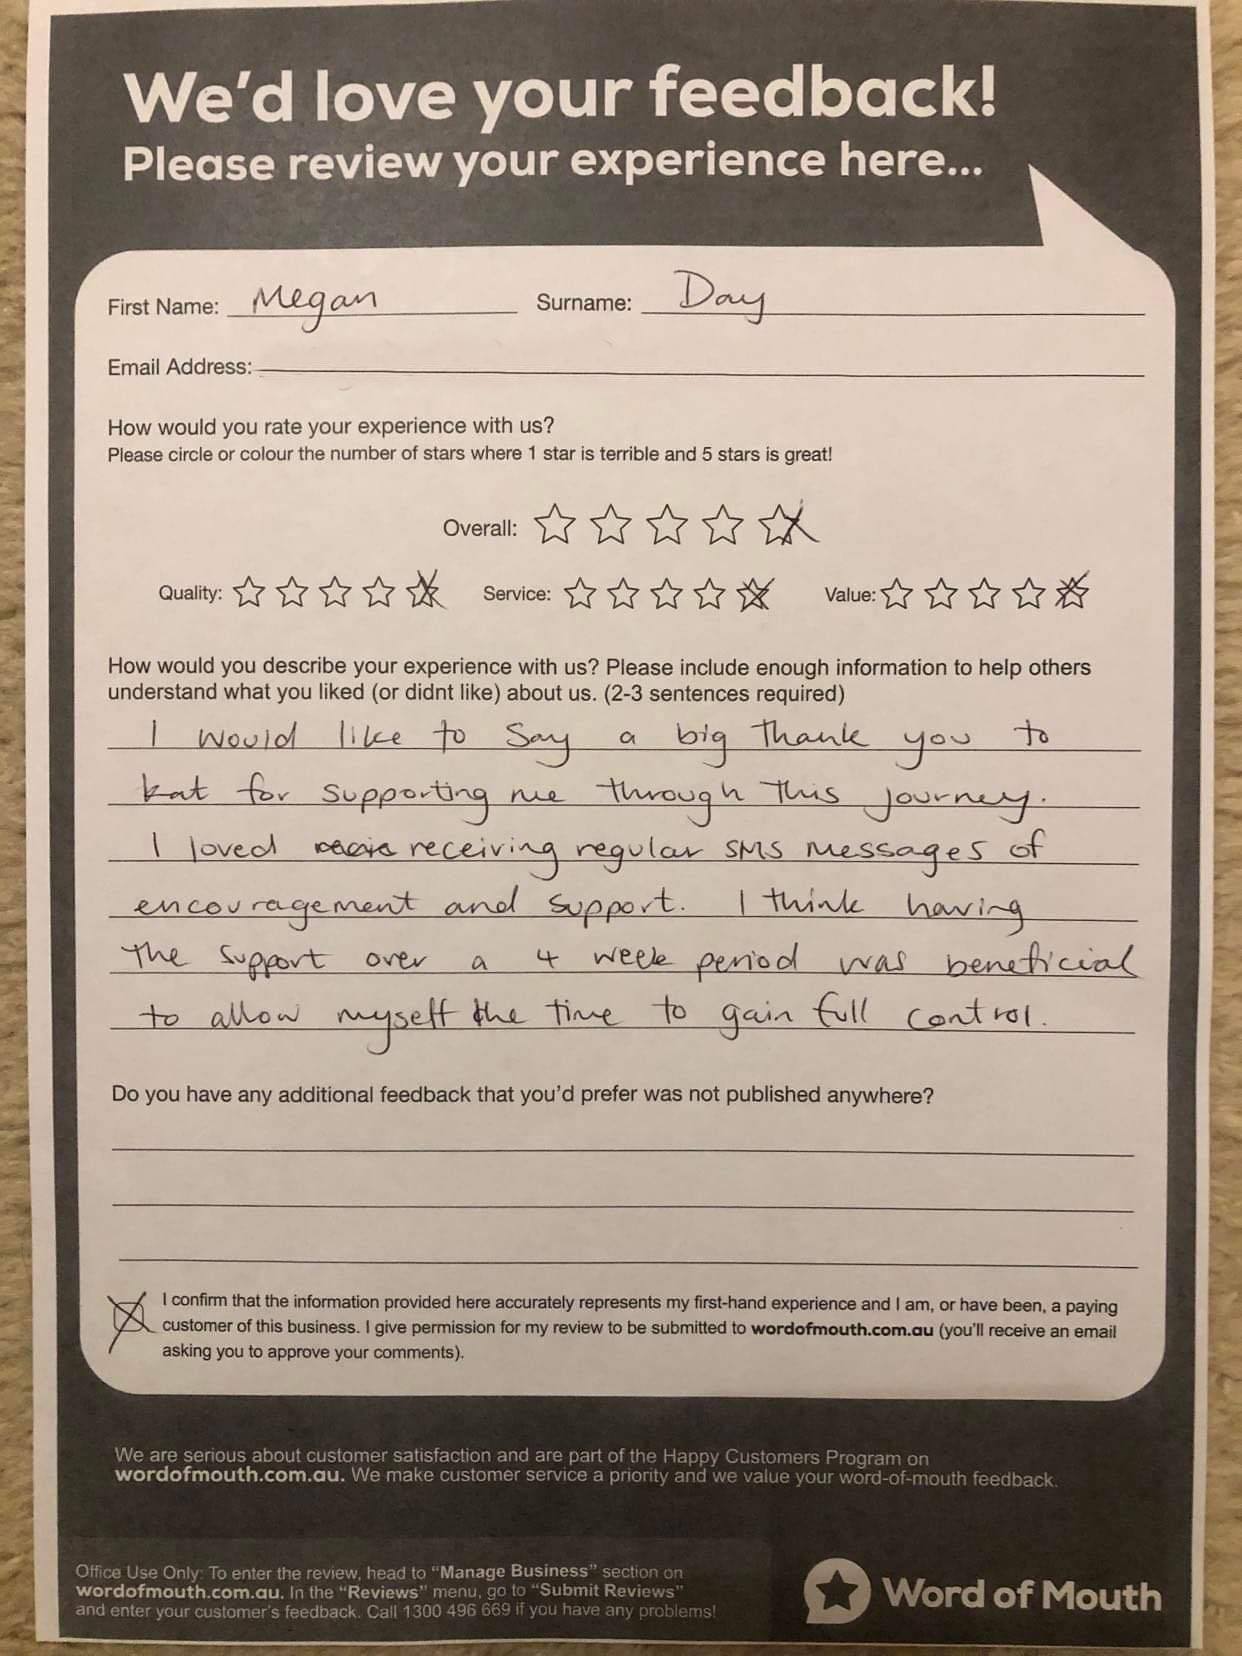 We'd love your feedback!
Please review your experience here...
First Name: Megan Surname: Day
Email Address:
How would you rate your experience with us?
Please circle or colour the number of stars where 1 star is terrible and 5 stars is great!
Overall:
Quality: Service: Value:
How would you describe your experience with us? Please include enough information to help others
understand what you liked (or didnt like) about us. (2-3 sentences required)
I would like to say a big thank you to
kat for supporting me through this journey.
I loved receiving regular SMS messages of
encouragement and support. I think having
the support over a 4 week period was beneficial
to allow myself the time to gain full control.
Do you have any additional feedback that you'd prefer was not published anywhere?
I confirm that the information provided here accurately represents my first-hand experience and I am, or have been, a paying
customer of this business. I give permission for my review to be submitted to wordofmouth.com.au (you'll receive an email
asking you to approve your comments).
We are serious about customer satisfaction and are part of the Happy Customers Program on
wordofmouth.com.au. We make customer service a priority and we value your word-of-mouth feedback.
Office Use Only: To enter the review, head to "Manage Business" section on
wordofmouth.com.au. In the "Reviews" menu, go to "Submit Reviews"
and enter your customer's feedback. Call 1300 496 669 if you have any problems!
Word of Mouth